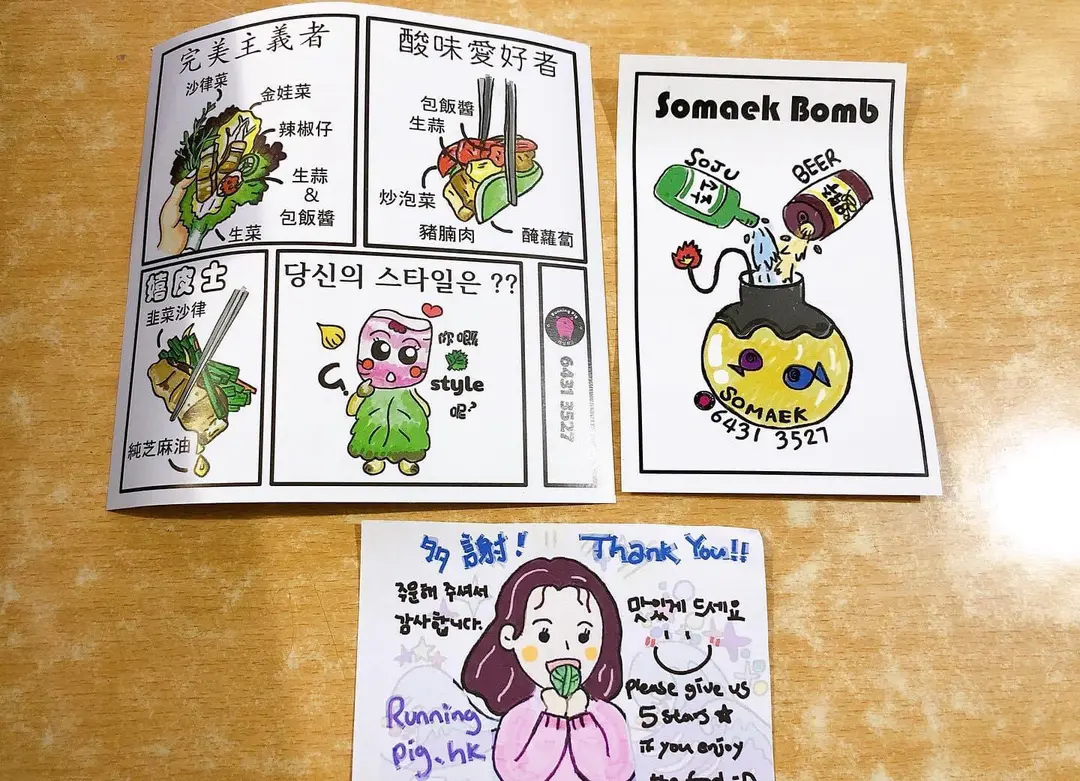 完美主義者
沙律菜
金娃菜
辣椒仔
生蒜
&
包飯醬
生菜
酸味愛好者
包飯醬
生蒜
炒泡菜
豬腩肉
醃蘿蔔
嬉皮士
韭菜沙律
純芝麻油
당신의 스타일은 ??
你嘅
style
呢?
Running Pig
6431 3527
Somaek Bomb
SOJU
소주
BEER
맥주
SOMAEK
6431 3527
多謝! Thank You!!
주문해 주셔서
감사합니다.
맛있게 드세요
Running
Pig.hk
please give us
5 stars ★
if you enjoy
the food :D